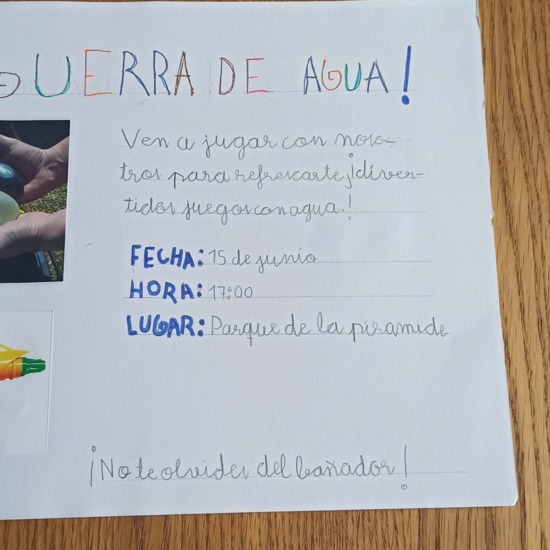 GUERRA DE AGUA!
Ven a jugar con noso-
tros para refrescarte ¡diver-
tidos juegos con agua!
FECHA: 15 de junio
HORA: 17:00
LUGAR: Parque de la piramide
¡No te olvides del bañador!